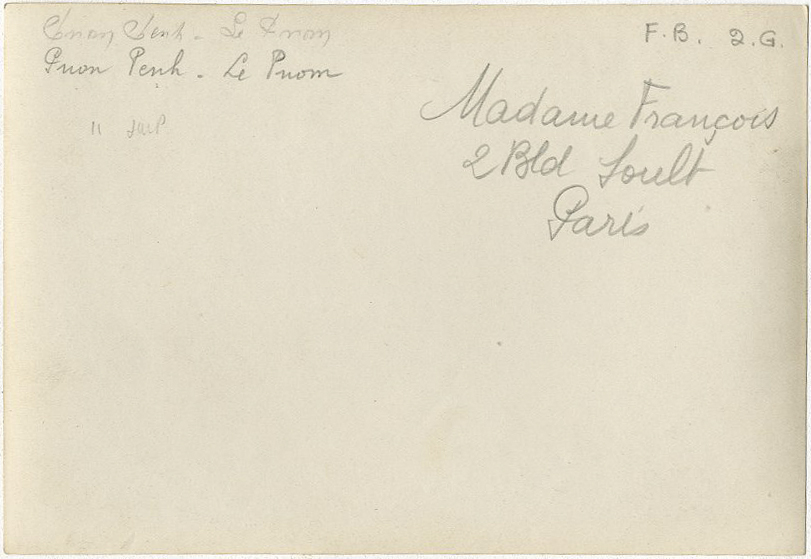 Pnom Penh - Le Pnom
Pnon Penh - Le Pnom
11
F.B. 2.G.
Madame François
2 Bld Soult
Paris